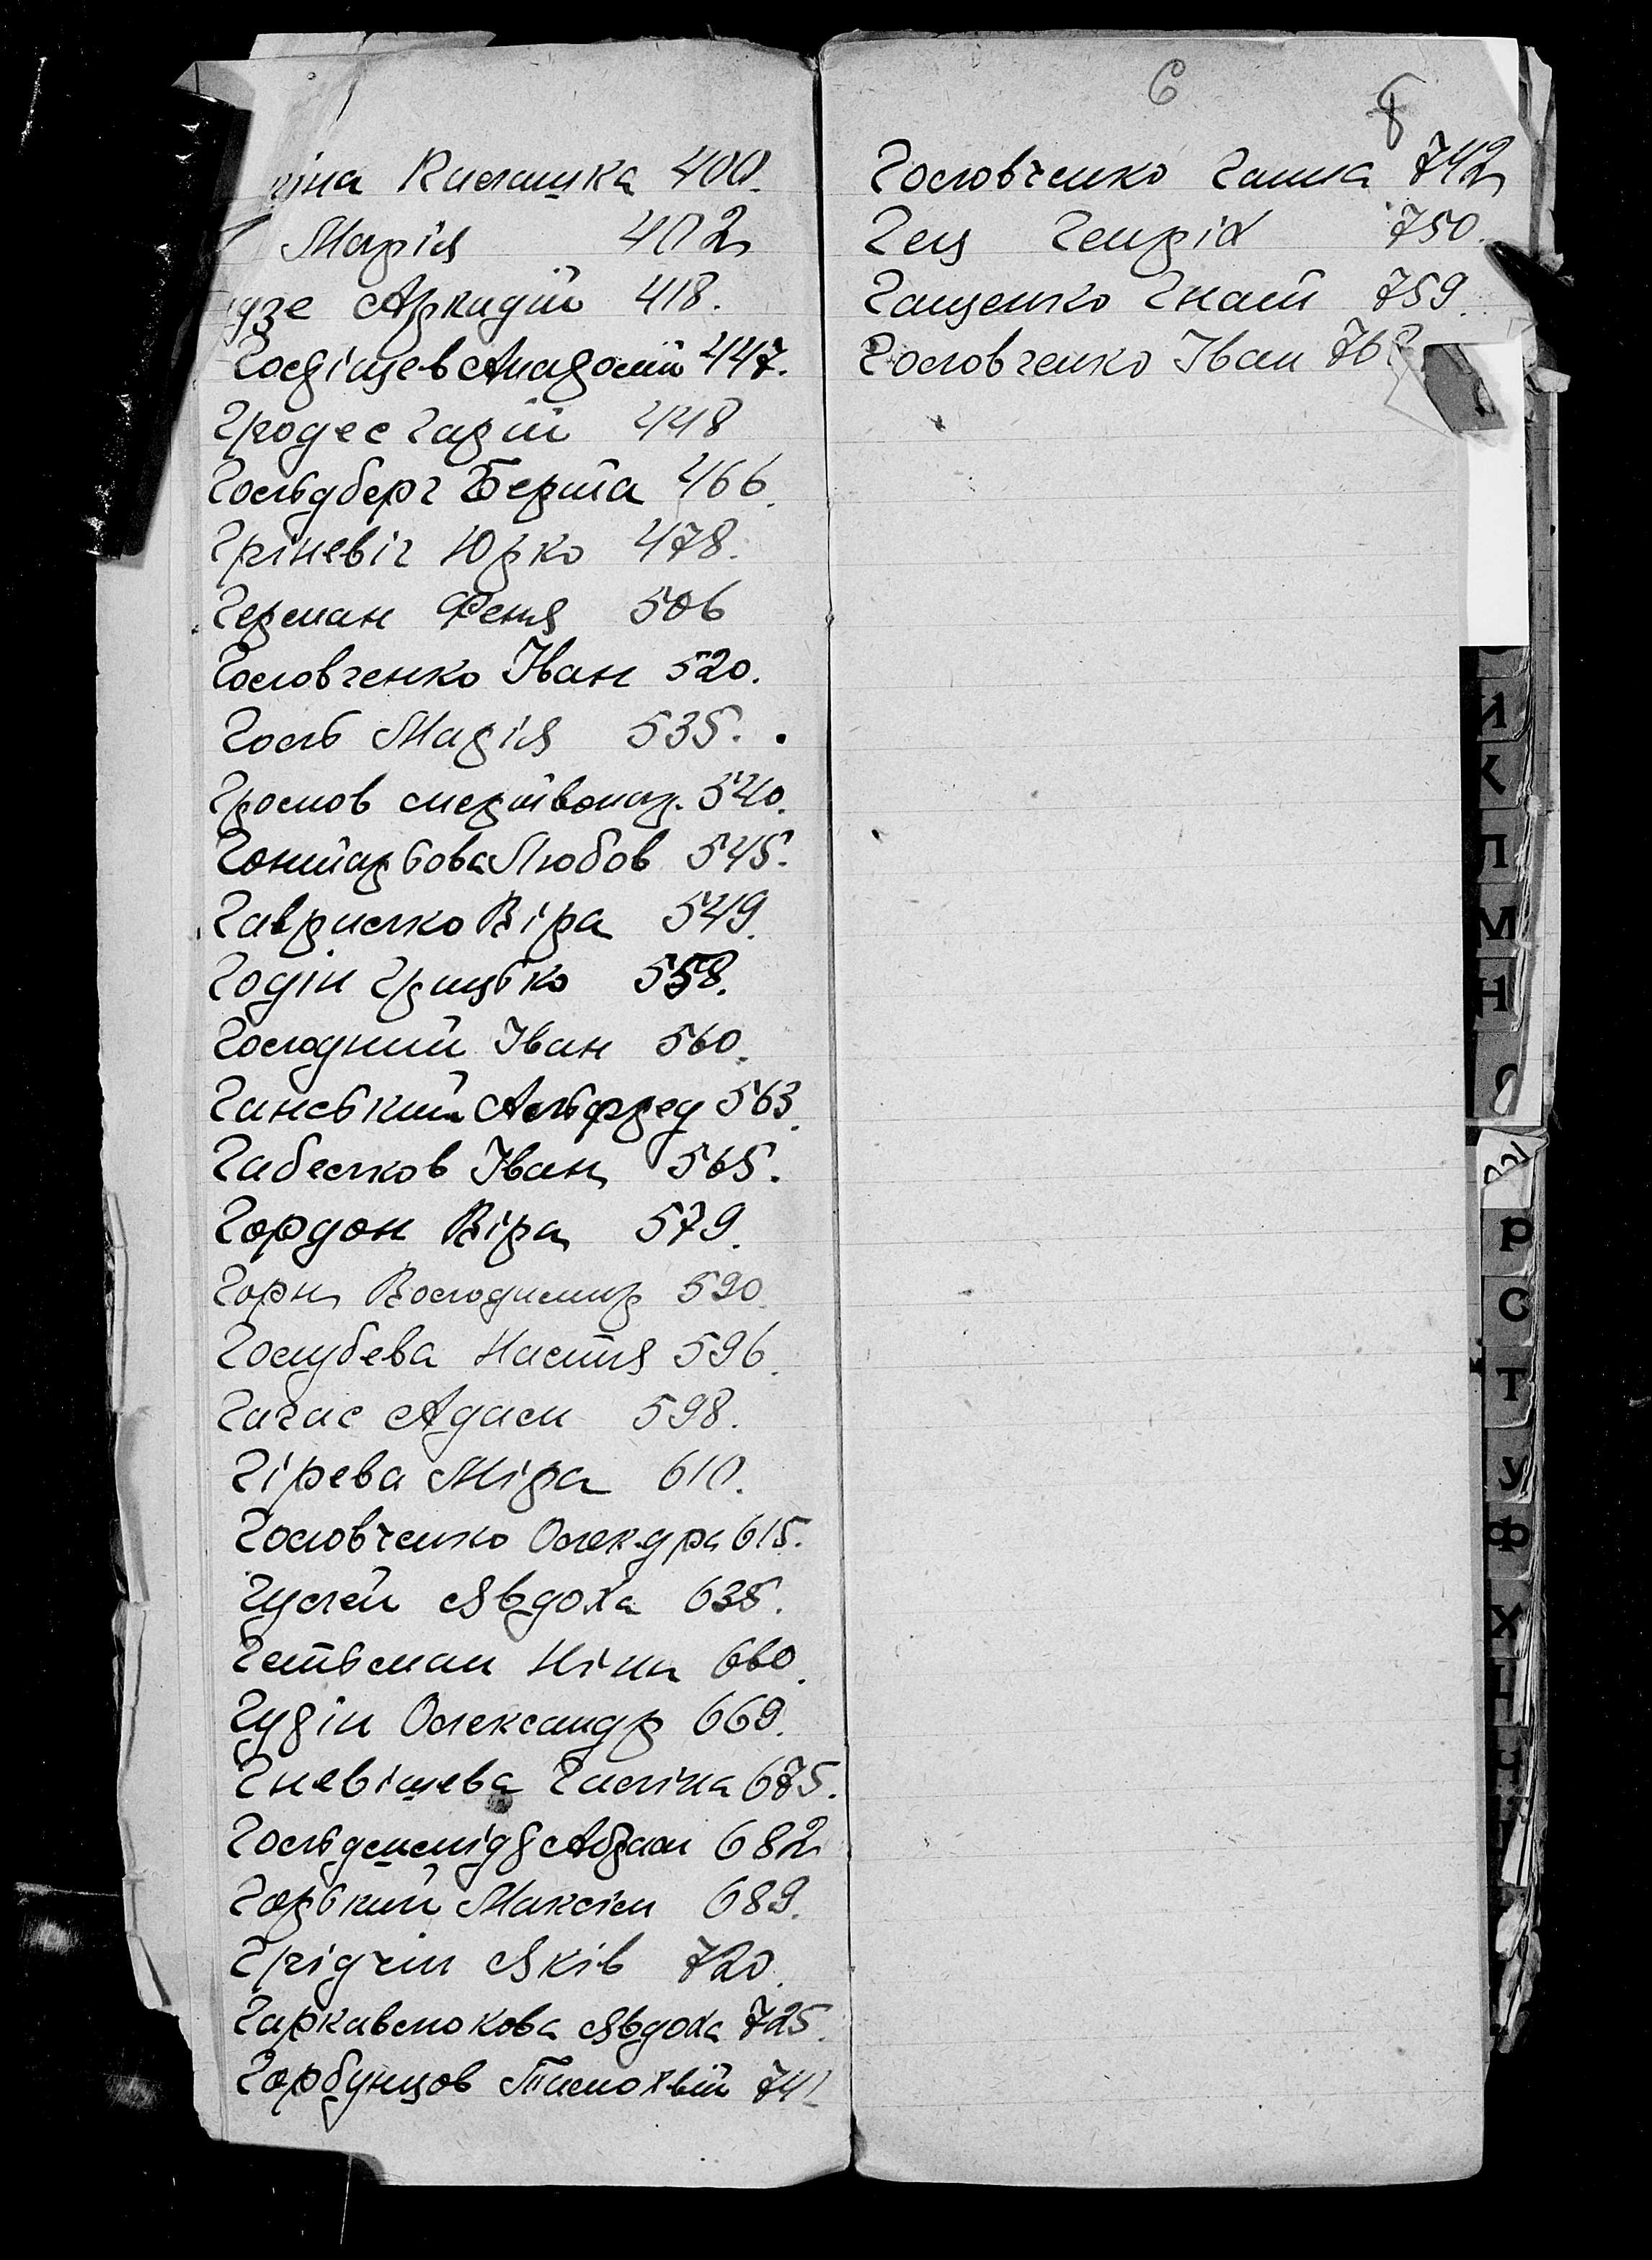 Килашка 400.
Марія 402
Аркадій 418.
Анатолій 447.
Гродес Гарій 448
Гольдберг Берта 466.
Гріневіч Юрко 478.
Герман Феня 506
Головченко Іван 520.
Голь Марія 535.
Громов мертвонар. 540.
Гонтарьова Любов 545.
Гаврилко Віра 549.
Годін Грицько 558.
Голодний Іван 560.
Ганський Альфред 563.
Габелков Іван 565.
Гордон Віра 579.
Горн Володимир 590.
Голубева Настя 596.
Гагас Адам 598.
Гірева Міра 610.
Головченко Олек-дра 615.
Гулей Явдоха 635.
Гетьман Ніна 660.
Гудін Олександр 669.
Гневішева Галіна 675.
Гольдшмідт Абрам 682
Горький Максім 689.
Грідчін Яків 720.
Гаркавлюкова Явдоха 725.
Горбунцов Тимохвій 741
6
8
Головченко Ганна 742
Гец Генріх 750.
Гащенко Гнат 759.
Головченко Іван 768
К
Л
М
Н
О
Р
С
Т
У
Ф
Х
Ч